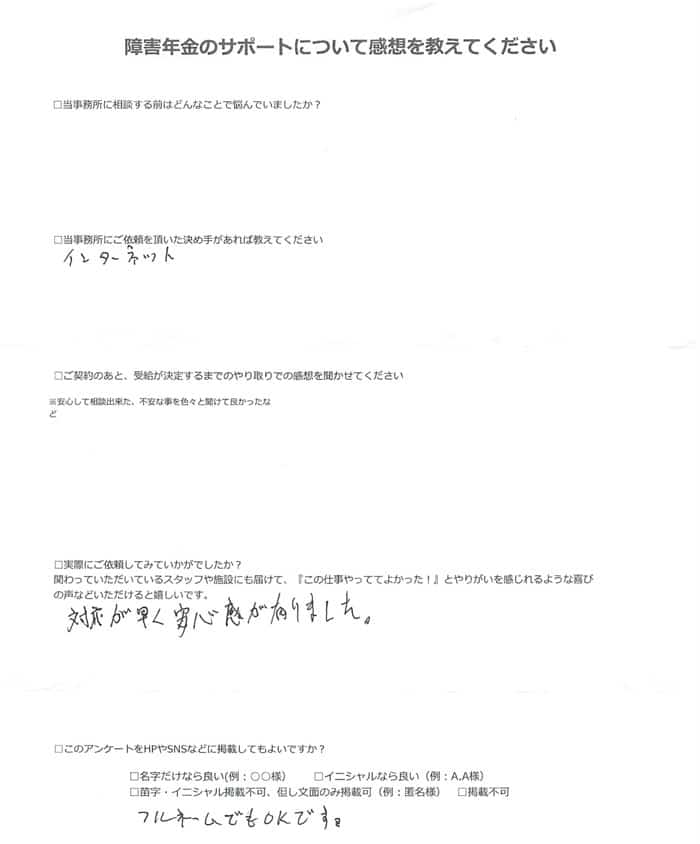 障害年金のサポートについて感想を教えてください
□当事務所に相談する前はどんなことで悩んでいましたか？
□当事務所にご依頼を頂いた決め手があれば教えてください
インターネット
□ご契約のあと、受給が決定するまでのやり取りでの感想を聞かせてください
※安心して相談出来た、不安な事を色々と聞けて良かったな
ど
□実際にご依頼してみていかがでしたか？
関わっていただいているスタッフや施設にも届けて、『この仕事やっててよかった！』とやりがいを感じれるような喜び
の声などいただけると嬉しいです。
対応が早く安心感が有りました。
□このアンケートをHPやSNSなどに掲載してもよいですか？
□名字だけなら良い(例：○○様） □イニシャルなら良い（例：A,A様）
□苗字・イニシャル掲載不可、但し文面のみ掲載可（例：匿名様） □掲載不可
フルネームでもOKです。